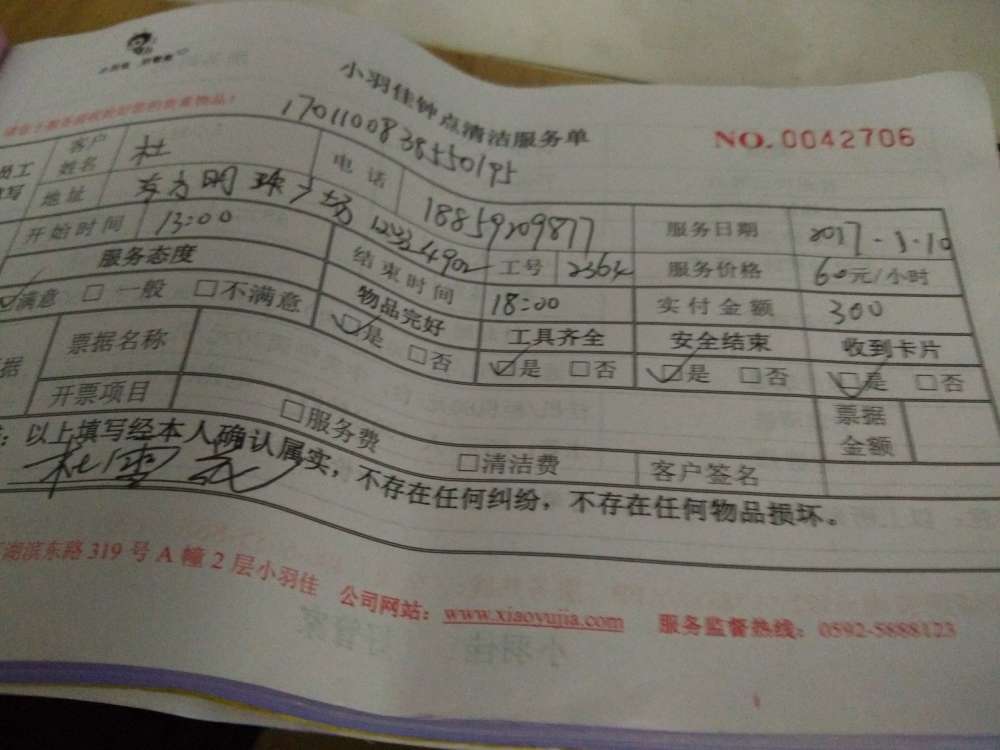 小羽佳钟点清洁服务单
NO.0042706
1701100838550195
客户姓名 杜 电话 18859209877 服务日期 2017.1.10
地址 东方明珠广场 工号 2364 服务价格 60元/小时
开始时间 13:00 结束时间 18:00 实付金额 300
服务态度 物品完好 工具齐全 安全结束 收到卡片
☑满意 □一般 □不满意 ☑是 □否 ☑是 □否 ☑是 □否 ☑是 □否
票据名称 票据金额
开票项目 □服务费 □清洁费 客户签名
以上填写经本人确认属实，不存在任何纠纷，不存在任何物品损坏。
湖滨东路319号A幢2层小羽佳 公司网站：www.xiaoyujia.com 服务监督热线：0592-5888123